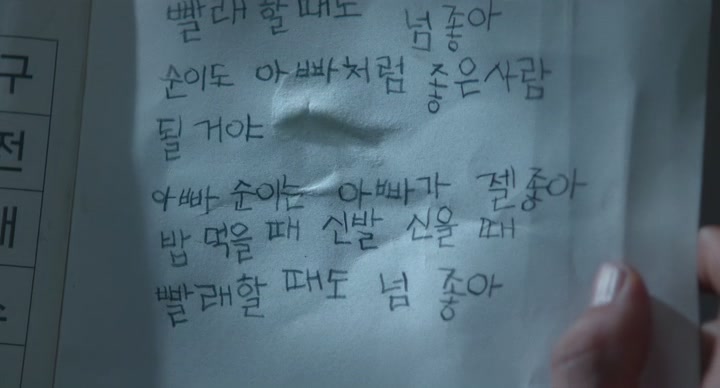 빨래할때도 넘좋아
순이도 아빠처럼 좋은사람
될거야
아빠 순이는 아빠가 젤좋아
밥 먹을 때 신발 신을 때
빨래할 때도 넘 좋아
구
전